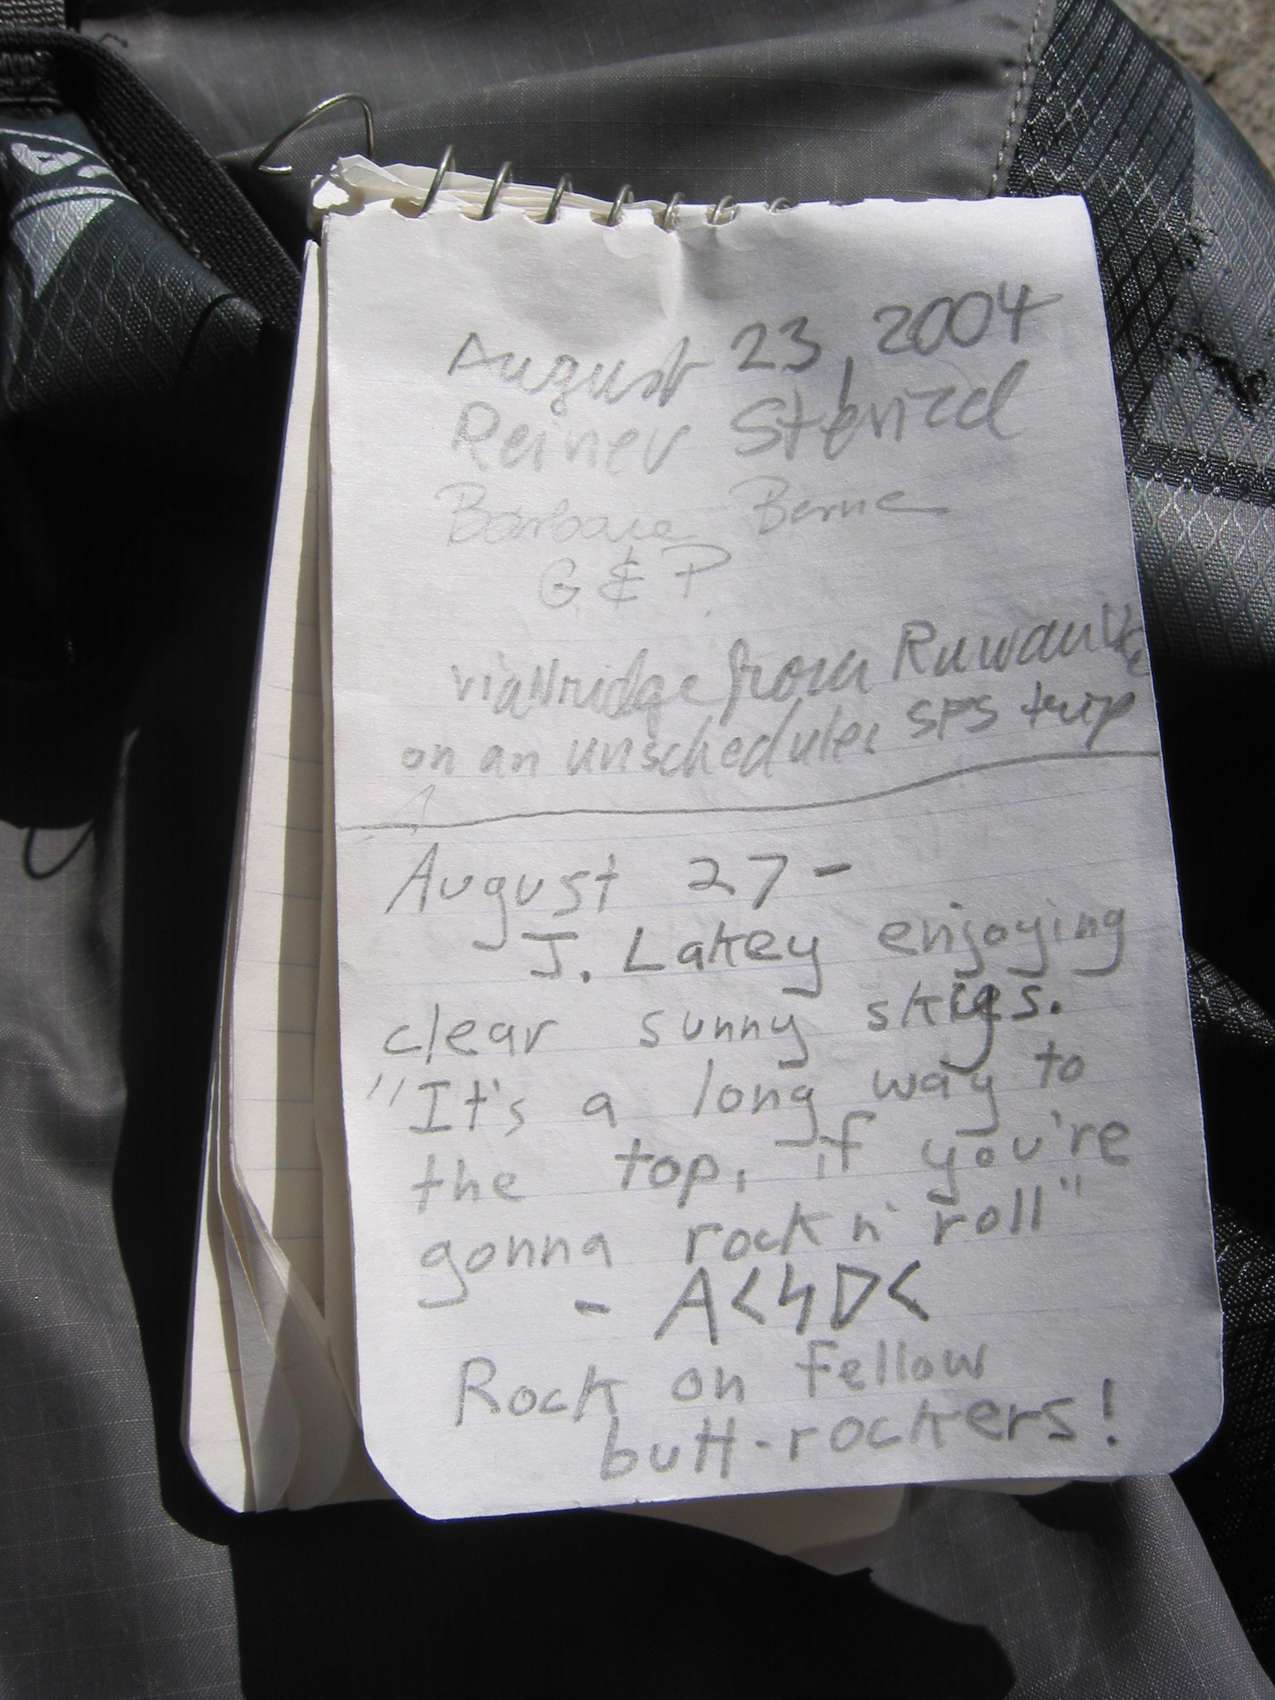 August 23, 2004
Reiner Stenzel
Barbara Berne
G & P.
via N ridge from Ruwau
on an unscheduled SPS trip
August 27 -
J. Lakey enjoying
clear sunny skies.
"It's a long way to
the top, if you're
gonna rock n' roll"
- AC/DC
Rock on fellow
butt-rockers!